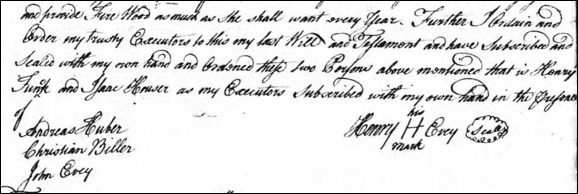 and provide Fire Wood as much as She shall want every Year. Further I Ordain and
Order my trusty Executors to this my last Will and Testament and have Subscribed and
Sealed with my own hand and Ordened these two Persons above mentioned that is Henry
Funk and Isaac Houser as my Executors Subscribed with my own hand in the Presence
of
Andreas Huber
Christian Biller
John Evey
his
Henry H Evey Seal
mark